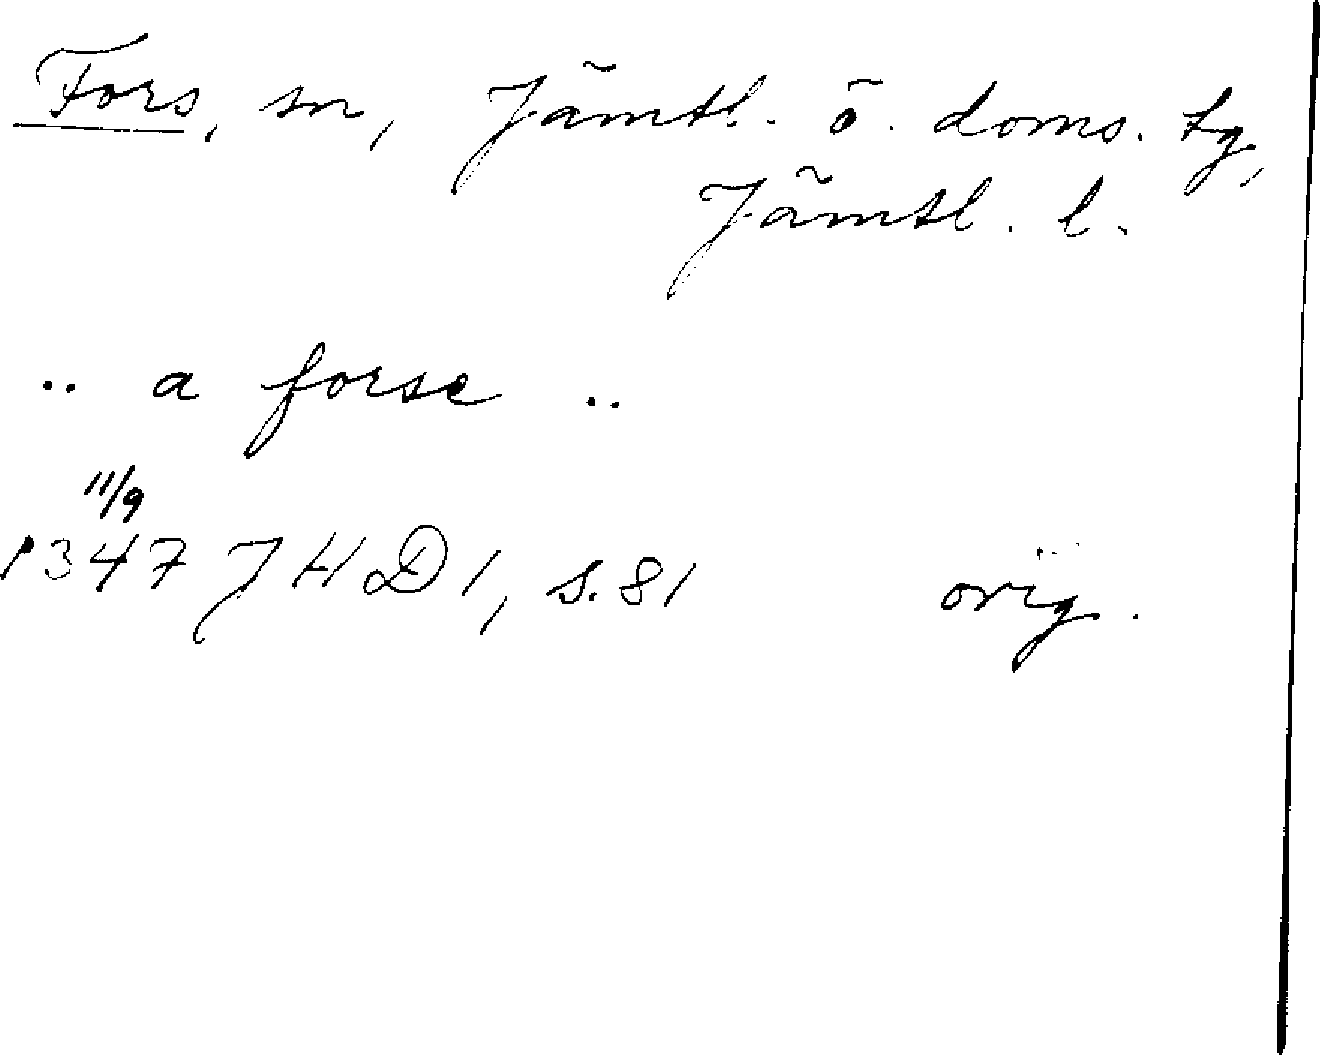 Fors, sn, Jämtl. ö. doms. tg,
Jämtl. l.
.. a forse ..
11/9
1347 JHD 1, s. 81 orig.